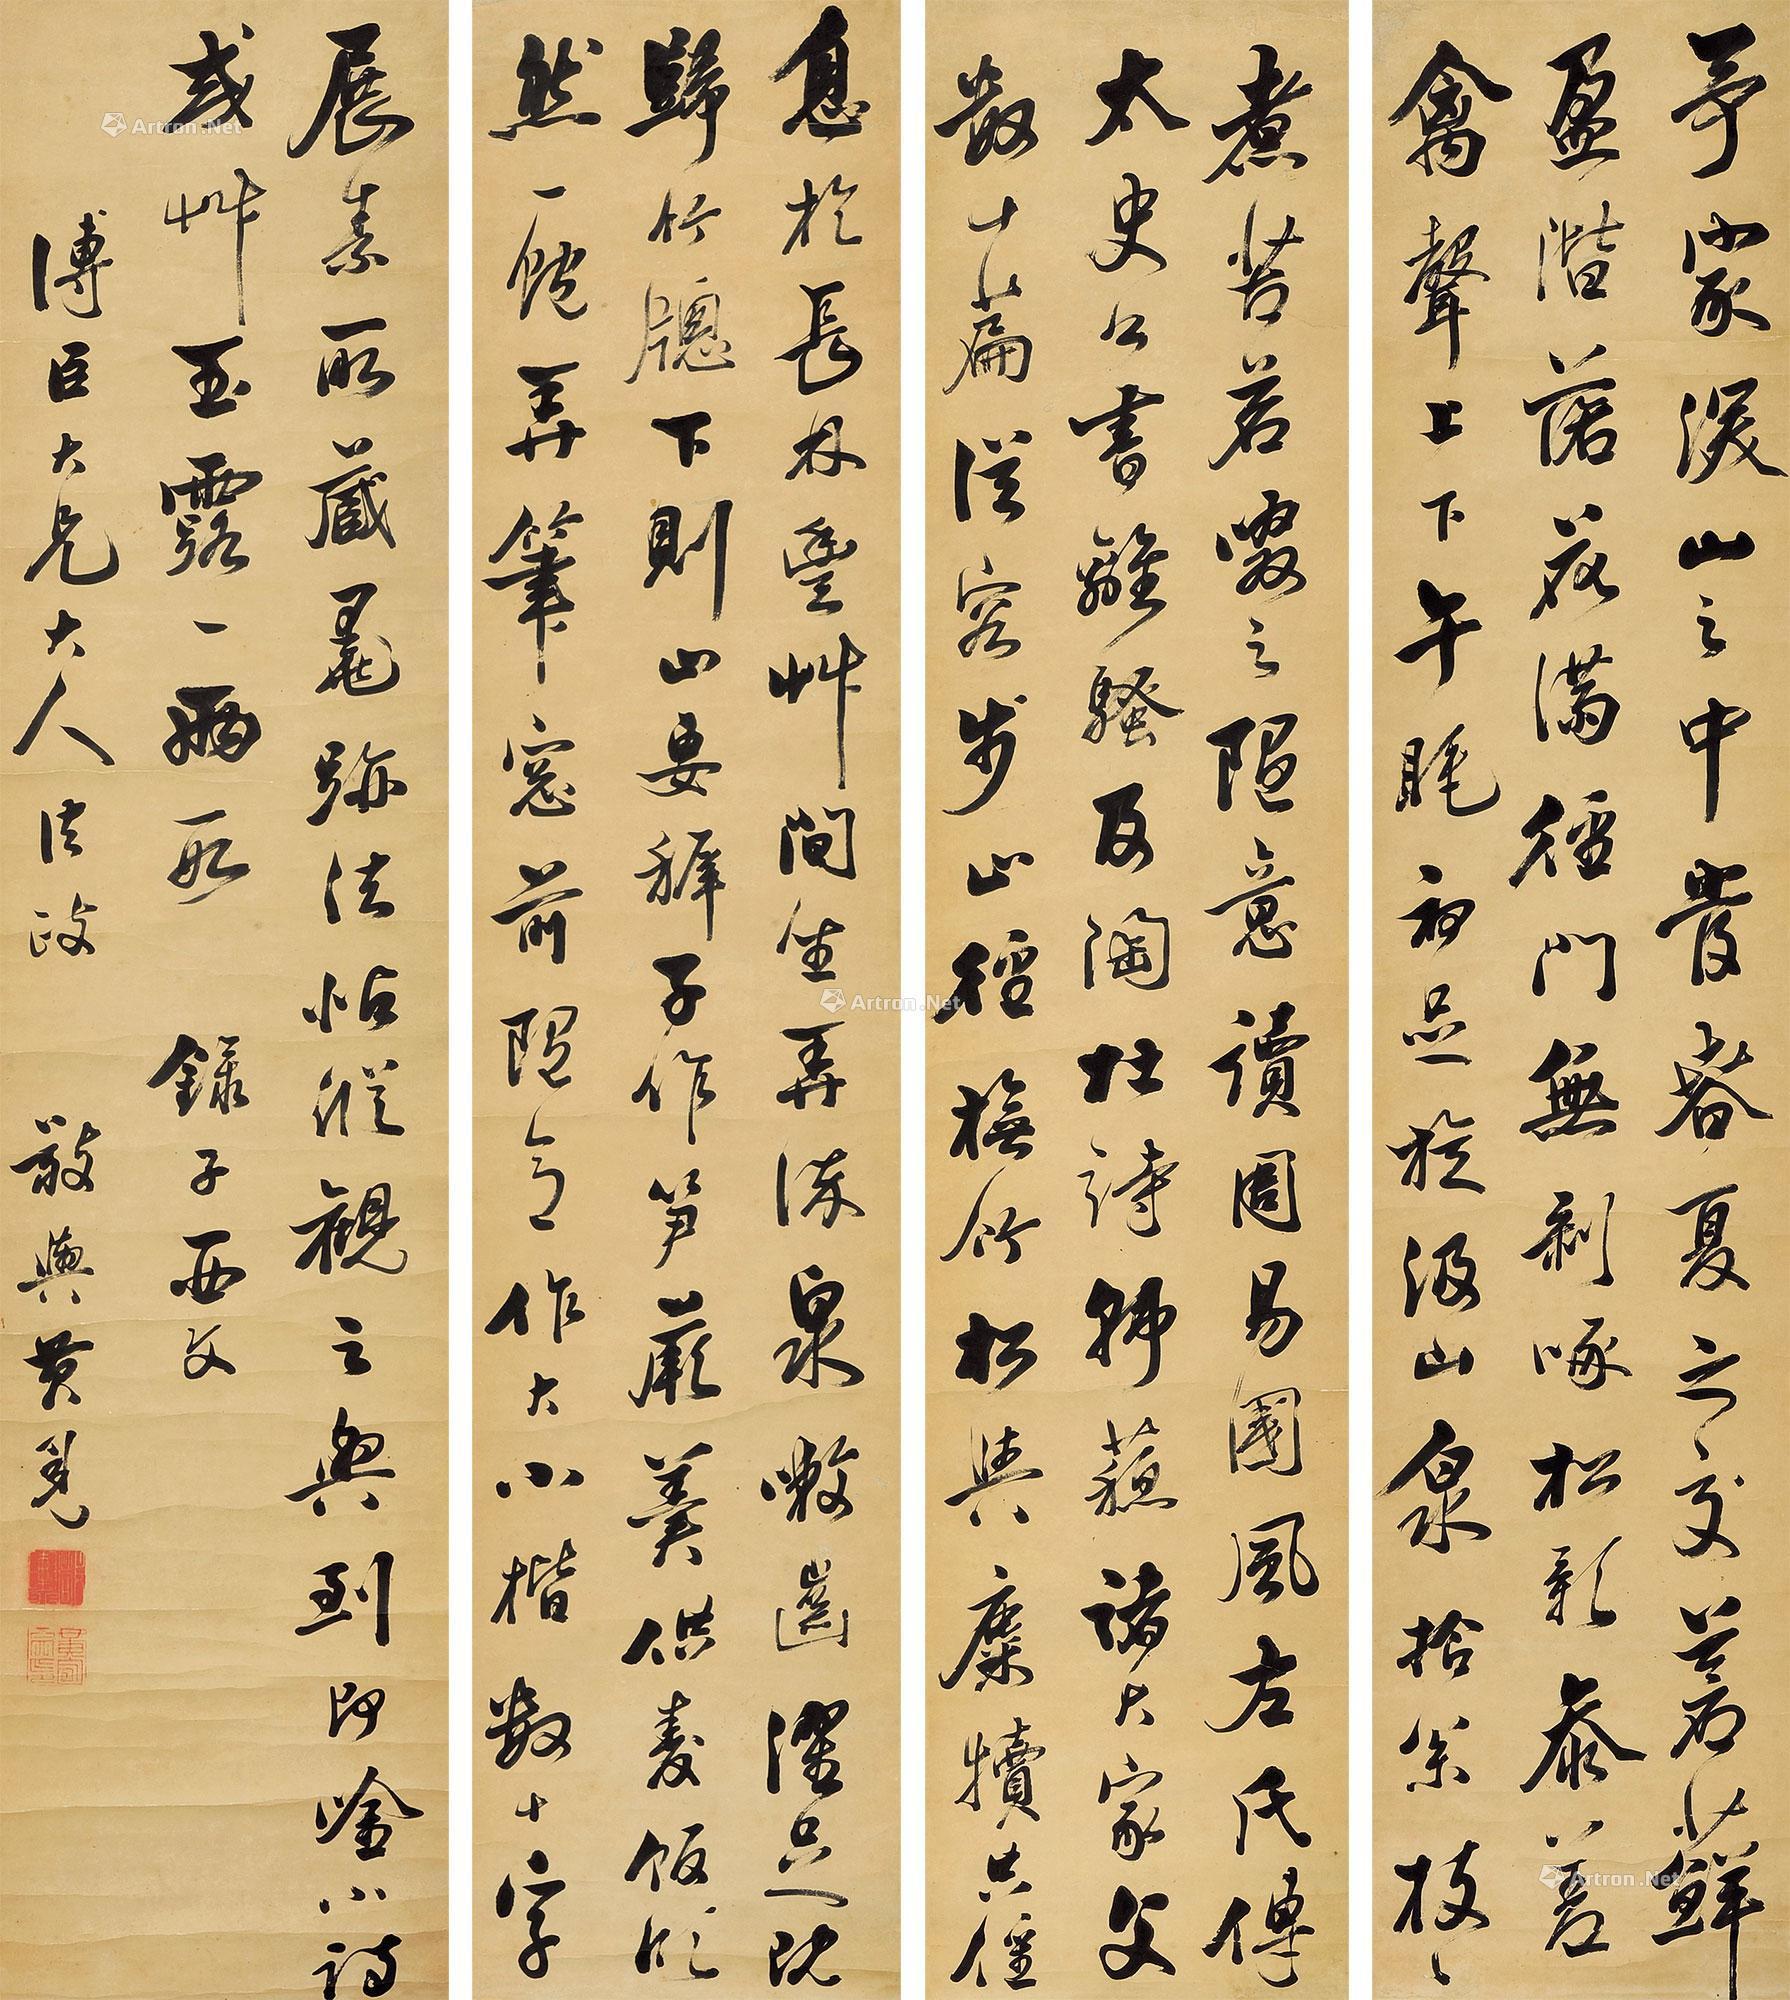 予家深山之中春夏之交蒼蘚
盈階落花滿徑門無剝啄松影參差
禽聲上下午睡初足旋汲山泉拾枩枝
煮苦茗啜之隨意讀周易國風左氏傳
太史公書離騷及陶杜詩韓蘇諸大家文
數十篇從容步山徑撫竹松與麋犢共偃
息於長林豐艸間坐弄流泉漱齒濯足既
歸竹牕下則山妻稺子作笋蕨羹供麥飯欣
然一飽弄筆窓前隨意作大小楷數十字
展素所藏墨跡法帖縱觀之興到即唫小詩
或艸玉露一兩段 錄子西文
溥臣大兄大人法政
Artron.Net
Artron.Net
Artron.Net